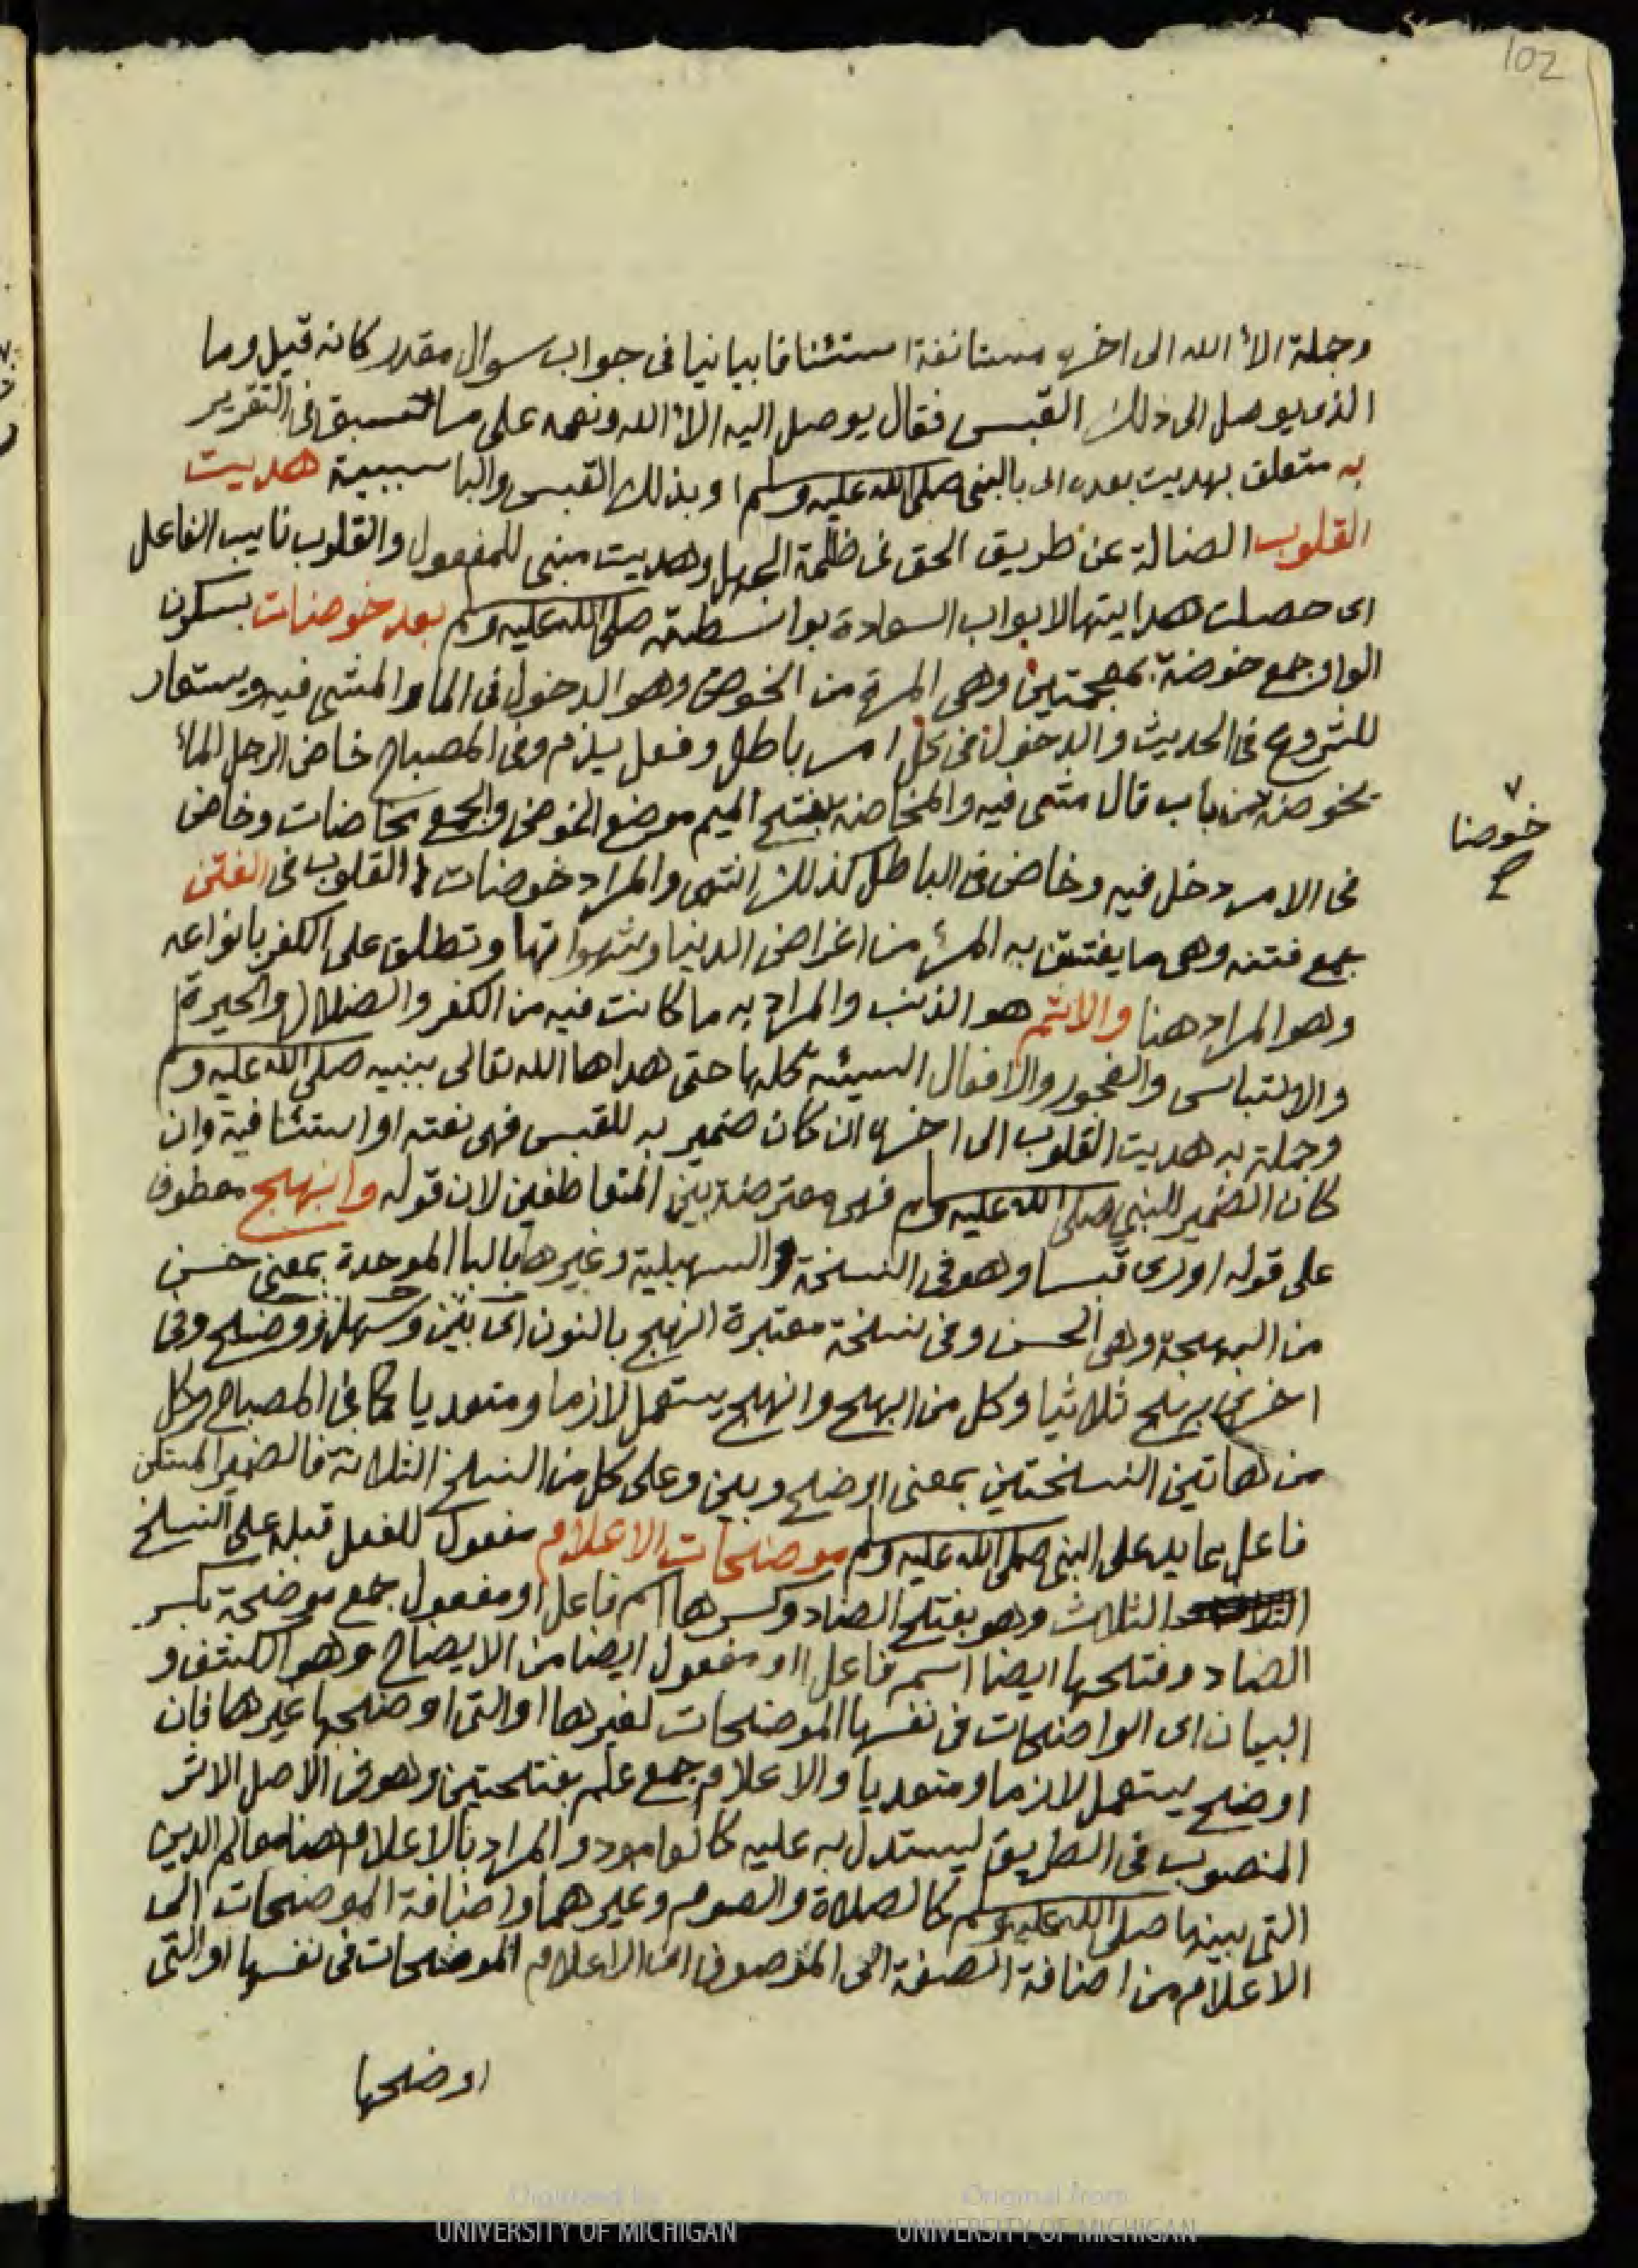 102
وجملة الاٴ الله الى اخره مستانفة استئنافا بيانيا فى جواب سوال مقدر كانه قيل وما
الذى يوصل الى ذلك القبس فقال يوصل اليه الاٴ الله ونعمه على ما سبق فى التقرير
به متعلق بهديت بعده اى بالنبى صلى الله عليه وسلم او بذلك القبس والبا سببية هديت
القلوب الضالة عن طريق الحق فى ظلمة الجهل وهديت مبنى للمفعول والقلوب نايب الفاعل
اى حصلت هدايتها لابواب السعادة بواسطته صلى الله عليه وم بعد خوضات بسكون
الواو جمع خوضة بمعجمتين وهى المرة من الخوض وهو الدخول فى الما والمشى فيه ويستعار
للشروع فى الحديث والدخول فى كل امر باطل وفعل يلزم وفى المصباح خاض الرجل الماٴ
يخوضه من باب قال مشى فيه والمخاضة بفتح الميم موضع الخوض والجمع مخاضات وخاض
خوضا
صح
فى الامر دخل فيه وخاض فى الباطل كذلك انتهى والمراد خوضات القلوب فى الفتن
جمع فتنه وهى ما يفتتن به المرٴ من اغراض الدنيا وشهواتها وتطلق على الكفر بانواعه
وهو المراد هنا والاثم هو الذنب والمراد به ما كانت فيه من الكفر والضلال والحيرة
والالتباس والفجور والافعال السيئة كلها حتى هداها الله تعالى بنبيه صلى الله عليه وم
وجملة به هديت القلوب الى اخره ان كان ضمير به للقبس فهى نعته او استئنافية وان
كان الضمير للنبى صلى الله عليه وم فهى معترضة بين المتعاطفين لان قوله وابهج معطوف
على قوله اورى قبسا وهو فى النسخة السهيلية وغيرها بالبا الموحدة بمعنى حسن
من البهجة وهى الحسن وفى نسخة معتبرة انهج بالنون اى بين وسهل ووضح وفى
اخرى نهج ثلاثيا وكل من ابهج وانهج يستعمل لازما ومتعديا كما فى المصباح وكل
من هاتين النسختين بمعنى اوضح وبين وعلى كل من النسخ الثلاثة فالضمير المستكن
فاعل عايد على النبى صلى الله عليه وم موضحات الاعلام مفعول للفعل قبله على النسخ
الثلاث وهو بفتح الضاد وكسرها اسم فاعل او مفعول جمع موضحة بكسر
الضاد وفتحها ايضا اسم فاعل او مفعول ايضا من الايضاح وهو الكشف و
البيان اى الواضحات فى نفسها الموضحات لغيرها او التى اوضحها غيرها فان
اوضح يستعمل لازما ومتعديا والاعلام جمع علم بفتحتين وهو فى الاصل الاثر
المنصوب فى الطريق ليستدل به عليه كالعامود والمراد بالاعلام هنا معالم الدين
التى بينها صلى الله عليه وم كالصلاة والصوم وغيرهما واضافة الموضحات الى
الاعلام من اضافة الصفة الى الموصوف اى الاعلام الموضحات فى نفسها او التى
اوضحها
Digitized by
UNIVERSITY OF MICHIGAN
Original from
UNIVERSITY OF MICHIGAN